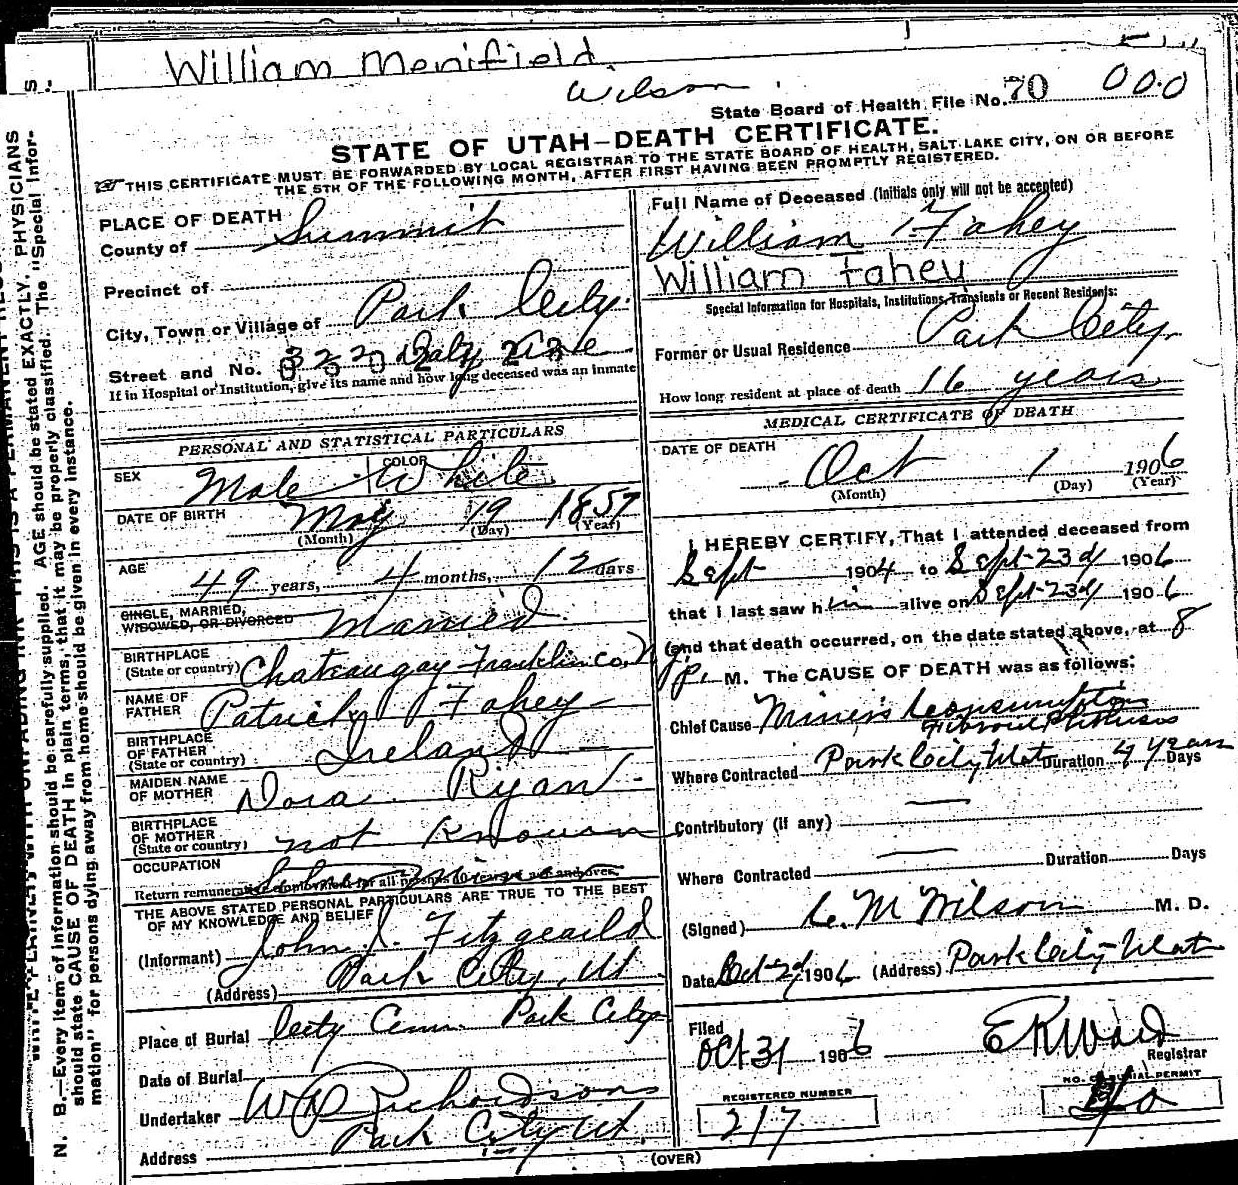 William Menifield
Wilson
State Board of Health File No. 70 000
STATE OF UTAH—DEATH CERTIFICATE.
THIS CERTIFICATE MUST BE FORWARDED BY LOCAL REGISTRAR TO THE STATE BOARD OF HEALTH, SALT LAKE CITY, ON OR BEFORE
THE 5TH OF THE FOLLOWING MONTH, AFTER FIRST HAVING BEEN PROMPTLY REGISTERED.
PLACE OF DEATH
County of Summit
Precinct of
City, Town or Village of Park City
Street and No. Daly Ave
If in Hospital or Institution, give its name and how long deceased was an inmate
PERSONAL AND STATISTICAL PARTICULARS
SEX Male COLOR White
DATE OF BIRTH May 19 1857
(Month) (Day) (Year)
AGE 49 years, 4 months, 12 days
SINGLE, MARRIED,
WIDOWED, OR DIVORCED Married
BIRTHPLACE
(State or country) Chateaugay Franklin co, N.Y.
NAME OF
FATHER Patrick Fahey
BIRTHPLACE
OF FATHER
(State or country) Ireland
MAIDEN NAME
OF MOTHER Dora Ryan
BIRTHPLACE
OF MOTHER
(State or country) not Known
OCCUPATION
Return remunerative employment for all persons 10 years of age and over
THE ABOVE STATED PERSONAL PARTICULARS ARE TRUE TO THE BEST
OF MY KNOWLEDGE AND BELIEF
(Informant) John J. Fitzgearld
(Address) Park City, Ut.
Place of Burial City Cem. Park City
Date of Burial
Undertaker Richardson
Address Park City Ut.
Full Name of Deceased (Initials only will not be accepted)
William Fahey
William Fahey
Special Information for Hospitals, Institutions, Transients or Recent Residents:
Former or Usual Residence Park City
How long resident at place of death 16 years
MEDICAL CERTIFICATE OF DEATH
DATE OF DEATH Oct 1 1906
(Month) (Day) (Year)
I HEREBY CERTIFY, That I attended deceased from
Sept 1904 to Sept 23d 1906
that I last saw him alive on Sept 23d 1906
(and that death occurred, on the date stated above, at 8
p. M. The CAUSE OF DEATH was as follows:
Chief Cause Miners Consumption
Fibroid Phthisis
Where Contracted Park City Utah Duration 4 years Days
Contributory (if any) —
Where Contracted — Duration Days
(Signed) C. M Wilson M. D.
Date Oct 2d 1906 (Address) Park City Utah
Filed
Oct 31 1906 E K Ward
Registrar
REGISTERED NUMBER
217
NO. OF BURIAL PERMIT
(OVER)
N. B.—Every item of information should be carefully supplied. AGE should be stated EXACTLY. PHYSICIANS
should state CAUSE OF DEATH in plain terms, that it may be properly classified. The "Special Infor-
mation" for persons dying away from home should be given in every instance.